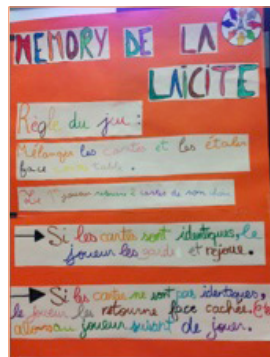 MEMORY DE LA
LAÏCITE
Règle du jeu :
Mélanger les cartes et les étaler
face contre table.
Le 1er joueur retourne 2 cartes de son choix
Si les cartes sont identiques, le
joueur les garde et rejoue.
Si les cartes ne sont pas identiques,
le joueur les retourne face cachée. Et
au joueur suivant de jouer.